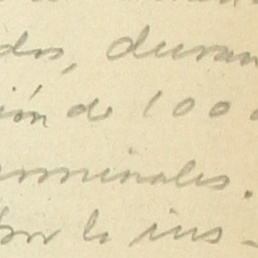 dos, duran
ión de 1000
erminales.
por la ins-